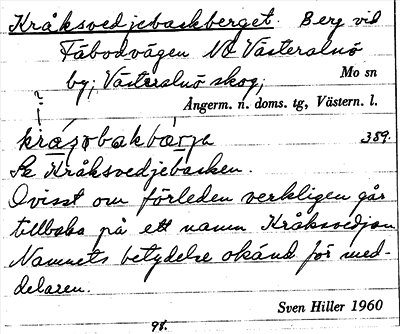 Kråksvedjebackberget. Berg vid
Fäbodvägen NO Västeralnö
by; Västeralnö skog;
Mo sn
Ångerm. n. doms. tg, Västern. l.
389.
Se Kråksvedjebacken.
Ovisst om förleden verkligen går
tillbaka på ett namn Kråksvedjan
Namnets betydelse okänd för med-
delaren.
Sven Hiller 1960
98.